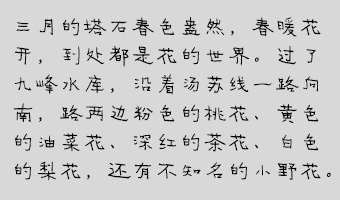 三月的塔石春色盎然，春暖花
开，到处都是花的世界。过了
九峰水库，沿着汤苏线一路向
南，路两边粉色的桃花、黄色
的油菜花、深红的茶花、白色
的梨花，还有不知名的小野花。